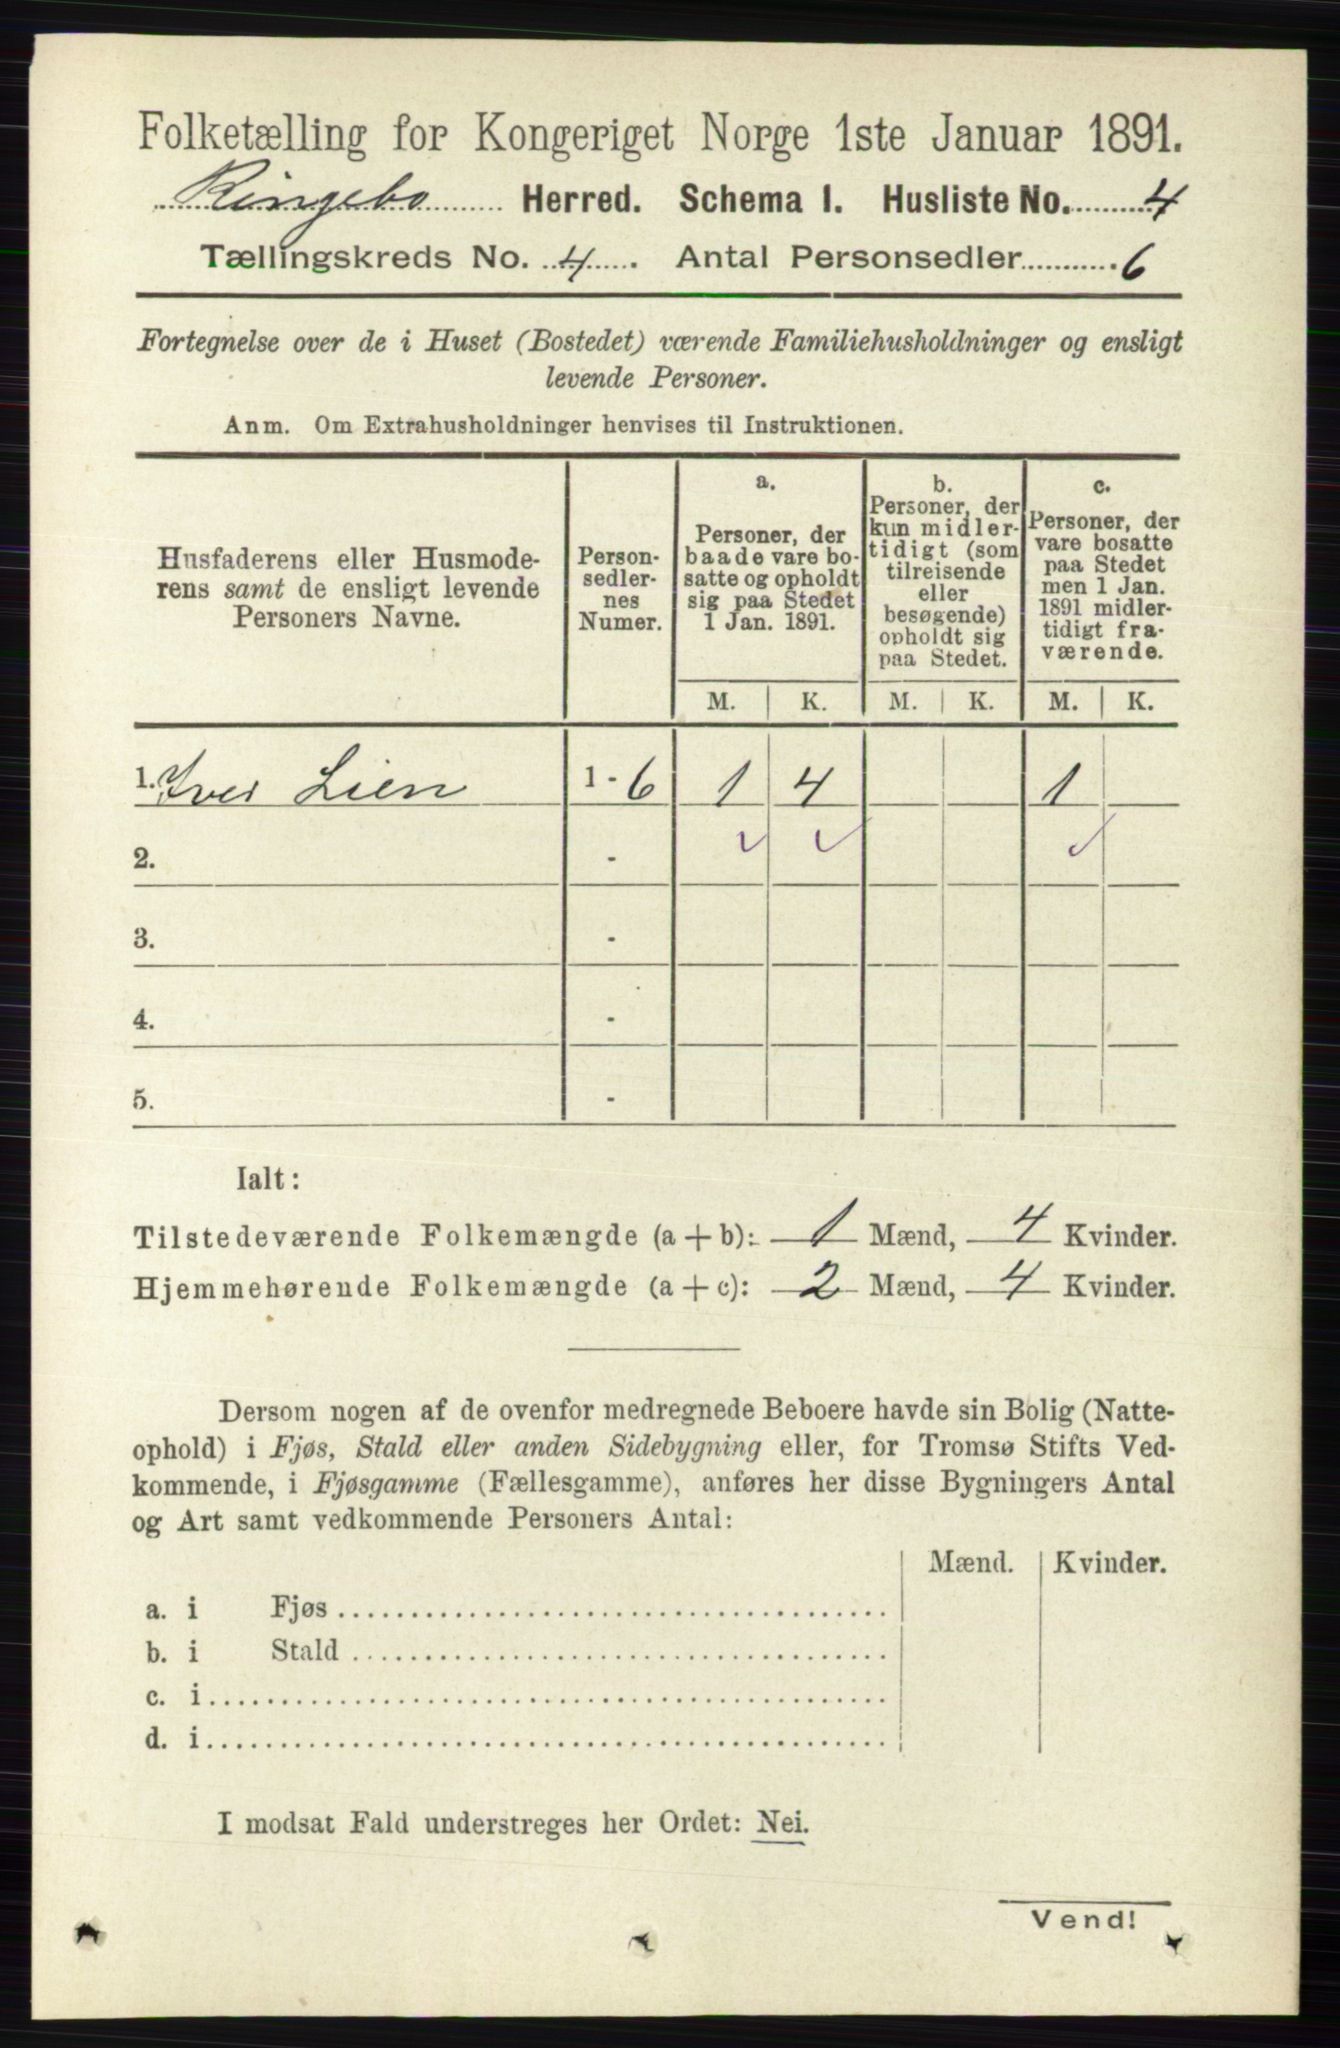 Folketælling for Kongeriget Norge 1ste Januar 1891.
Ringebo Herred. Schema I. Husliste No. 4
Tællingskreds No. 4. Antal Personsedler 6
Fortegnelse over de i Huset (Bostedet) værende Familiehusholdninger og ensligt
levende Personer.
Anm. Om Extrahusholdninger henvises til Instruktionen.
Husfaderens eller Husmode-
rens samt de ensligt levende
Personers Navne.
Person-
sedler-
nes
Numer.
a.
Personer, der
baade vare bo-
satte og opholdt
sig paa Stedet
1 Jan. 1891.
b.
Personer, der
kun midler-
tidigt (som
tilreisende
eller
besøgende)
opholdt sig
paa Stedet.
c.
Personer, der
vare bosatte
paa Stedet
men 1 Jan.
1891 midler-
tidigt fra-
værende.
M. K. M. K. M. K.
1. Iver Lien 1 - 6 1 4 1
2. -
3. -
4. -
5. -
Ialt:
Tilstedeværende Folkemængde (a + b): 1 Mænd, 4 Kvinder.
Hjemmehørende Folkemængde (a + c): 2 Mænd, 4 Kvinder.
Dersom nogen af de ovenfor medregnede Beboere havde sin Bolig (Natte-
ophold) i Fjøs, Stald eller anden Sidebygning eller, for Tromsø Stifts Ved-
kommende, i Fjøsgamme (Fællesgamme), anføres her disse Bygningers Antal
og Art samt vedkommende Personers Antal:
Mænd. Kvinder.
a. i Fjøs
b. i Stald
c. i
d. i
I modsat Fald understreges her Ordet: Nei.
Vend!